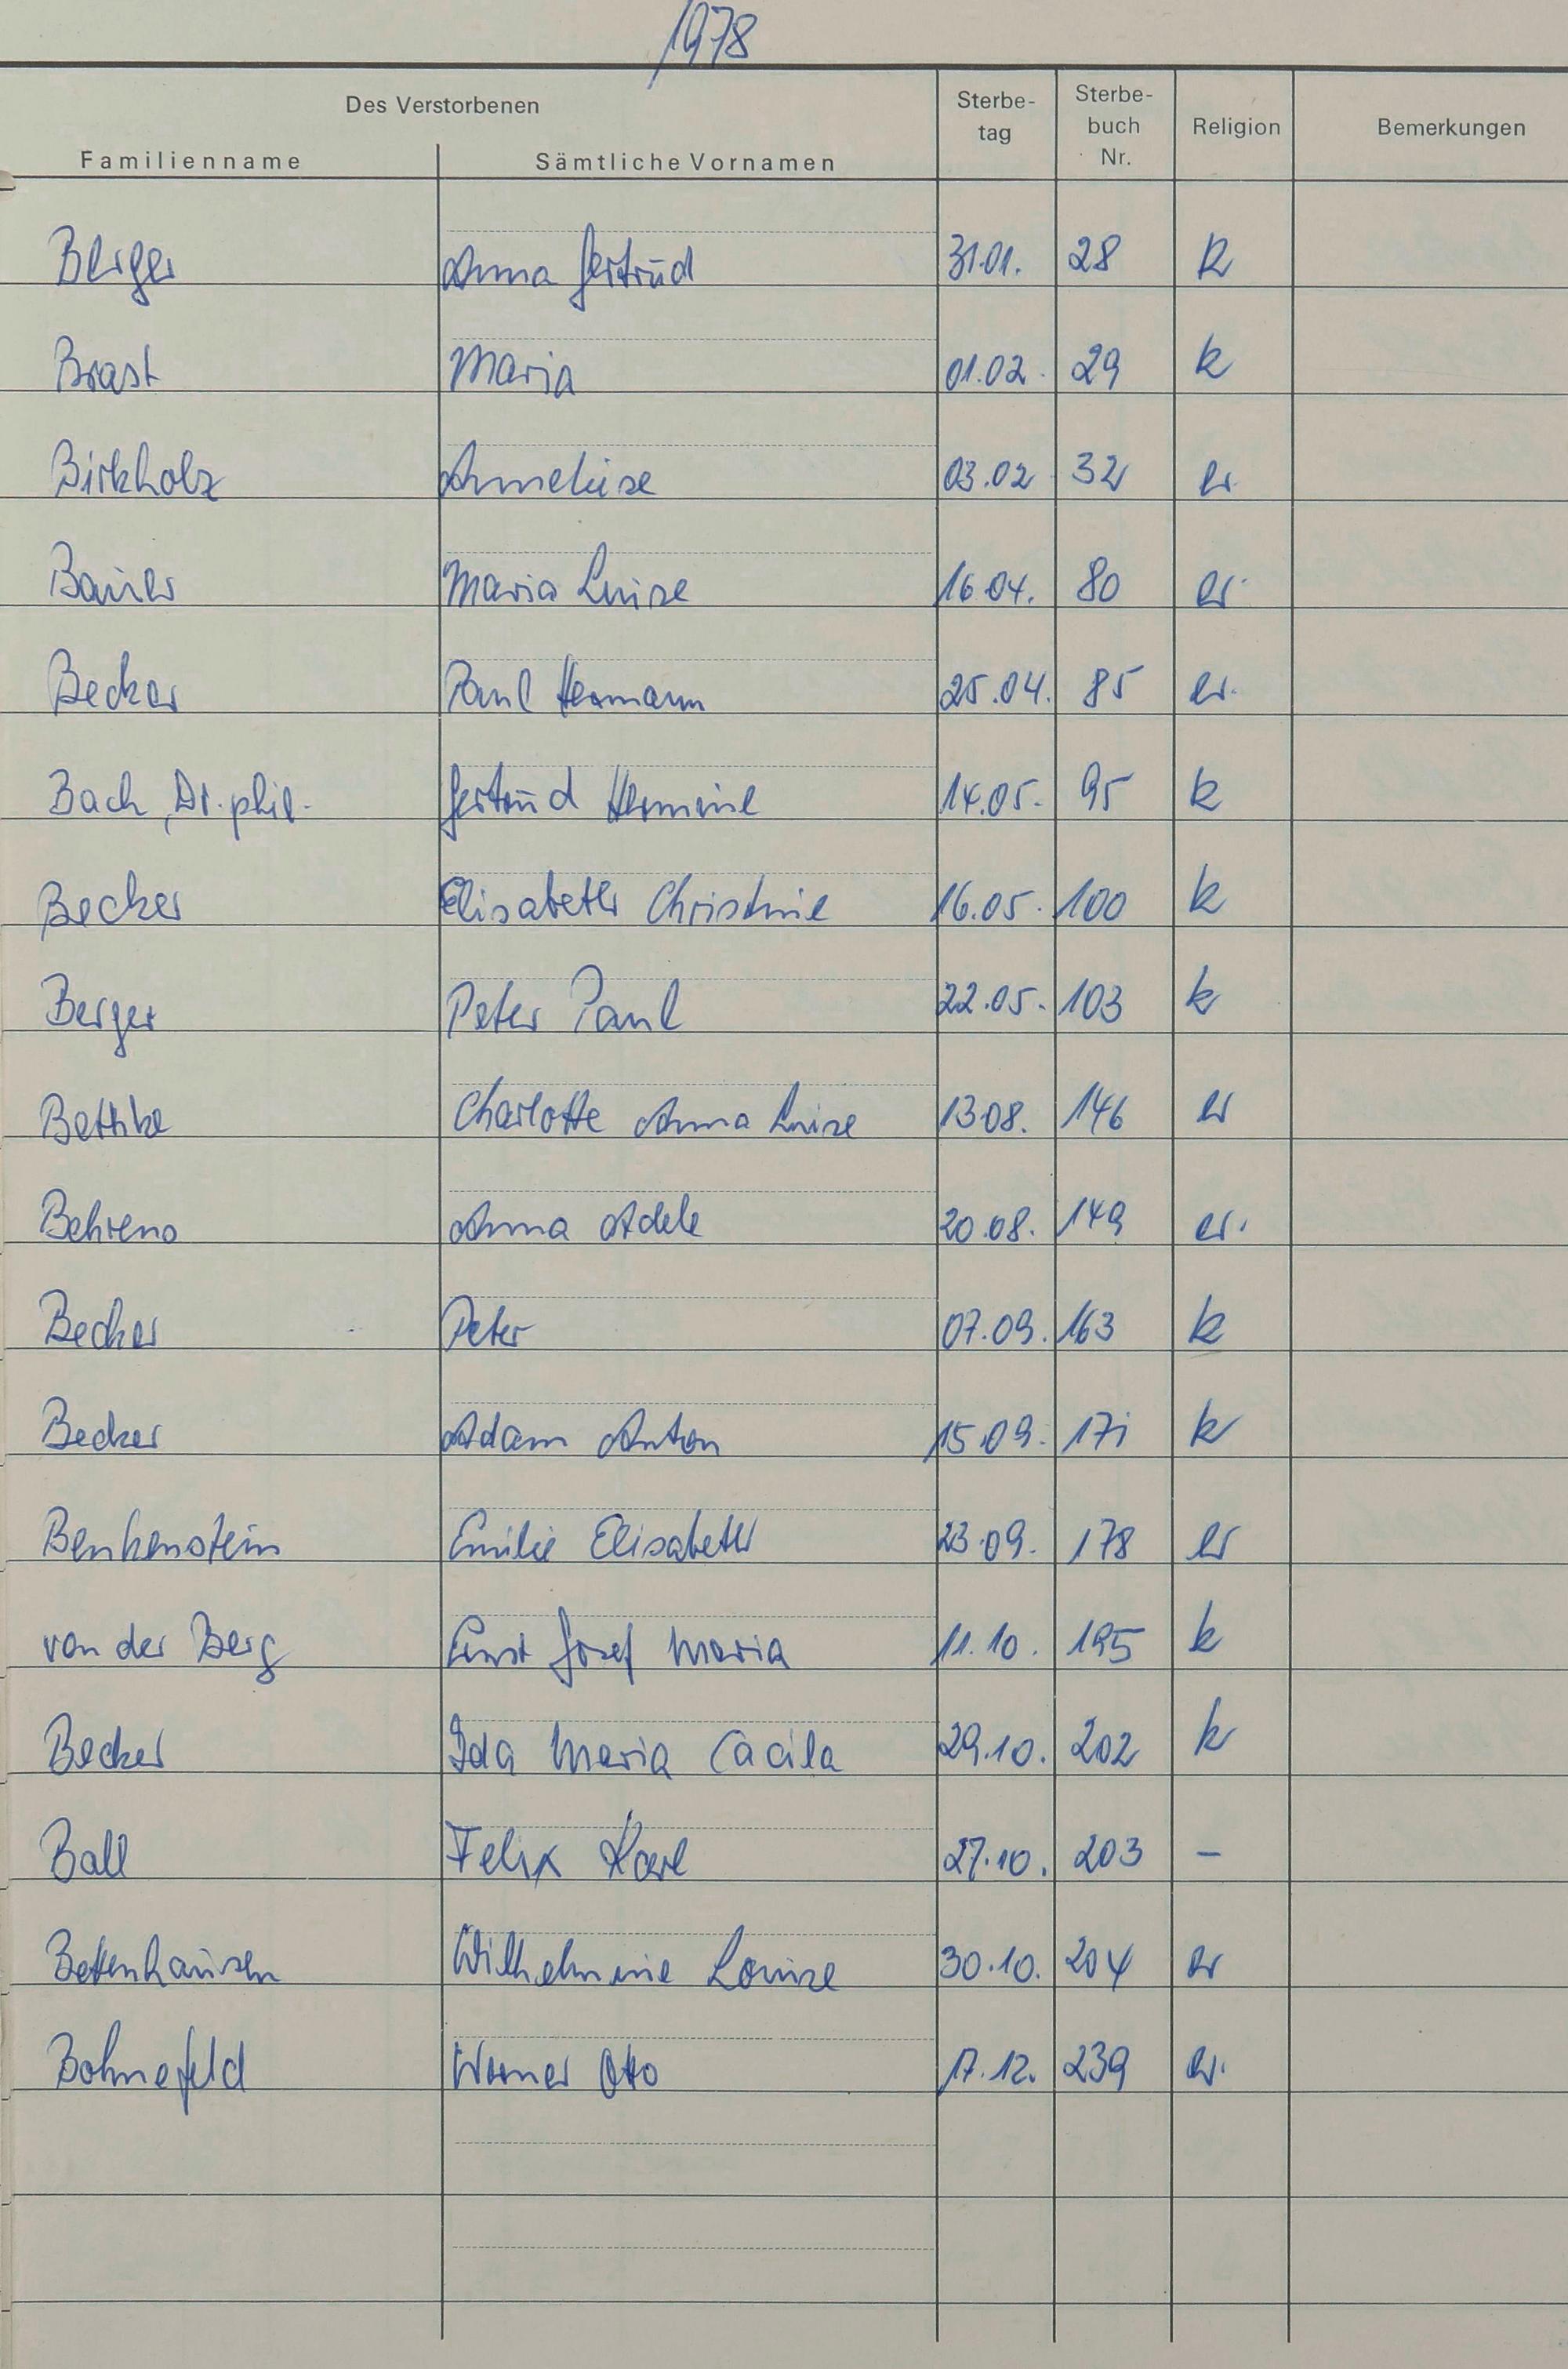 1978
Des Verstorbenen
Familienname Sämtliche Vornamen Sterbe-tag Sterbe-buch Nr. Religion Bemerkungen
Berger Anna Gertrud 31.01. 28 k
Brast Maria 01.02. 29 k
Birkholz Anneliese 03.02 32 ev.
Bauer Maria Luise 16.04. 80 ev.
Becker Paul Hermann 25.04. 85 ev.
Bach, Dr. phil. Gertrud Hermine 14.05. 95 k
Becker Elisabeth Christine 16.05. 100 k
Berger Peter Paul 22.05. 103 k
Bethke Charlotte Anna Luise 13.08. 146 ev
Behrens Anna Adele 20.08. 149 ev.
Becker Peter 07.09. 163 k
Becker Adam Anton 15.09. 171 k
Benkenstein Emilie Elisabeth 23.09. 178 ev
von der Berg Ernst Josef Maria 11.10. 195 k
Becker Ida Maria Cäcila 29.10. 202 k
Ball Felix Karl 27.10. 203 –
Bettenhausen Wilhelmine Louise 30.10. 204 ev
Bohnefeld Werner Otto 17.12. 239 ev.